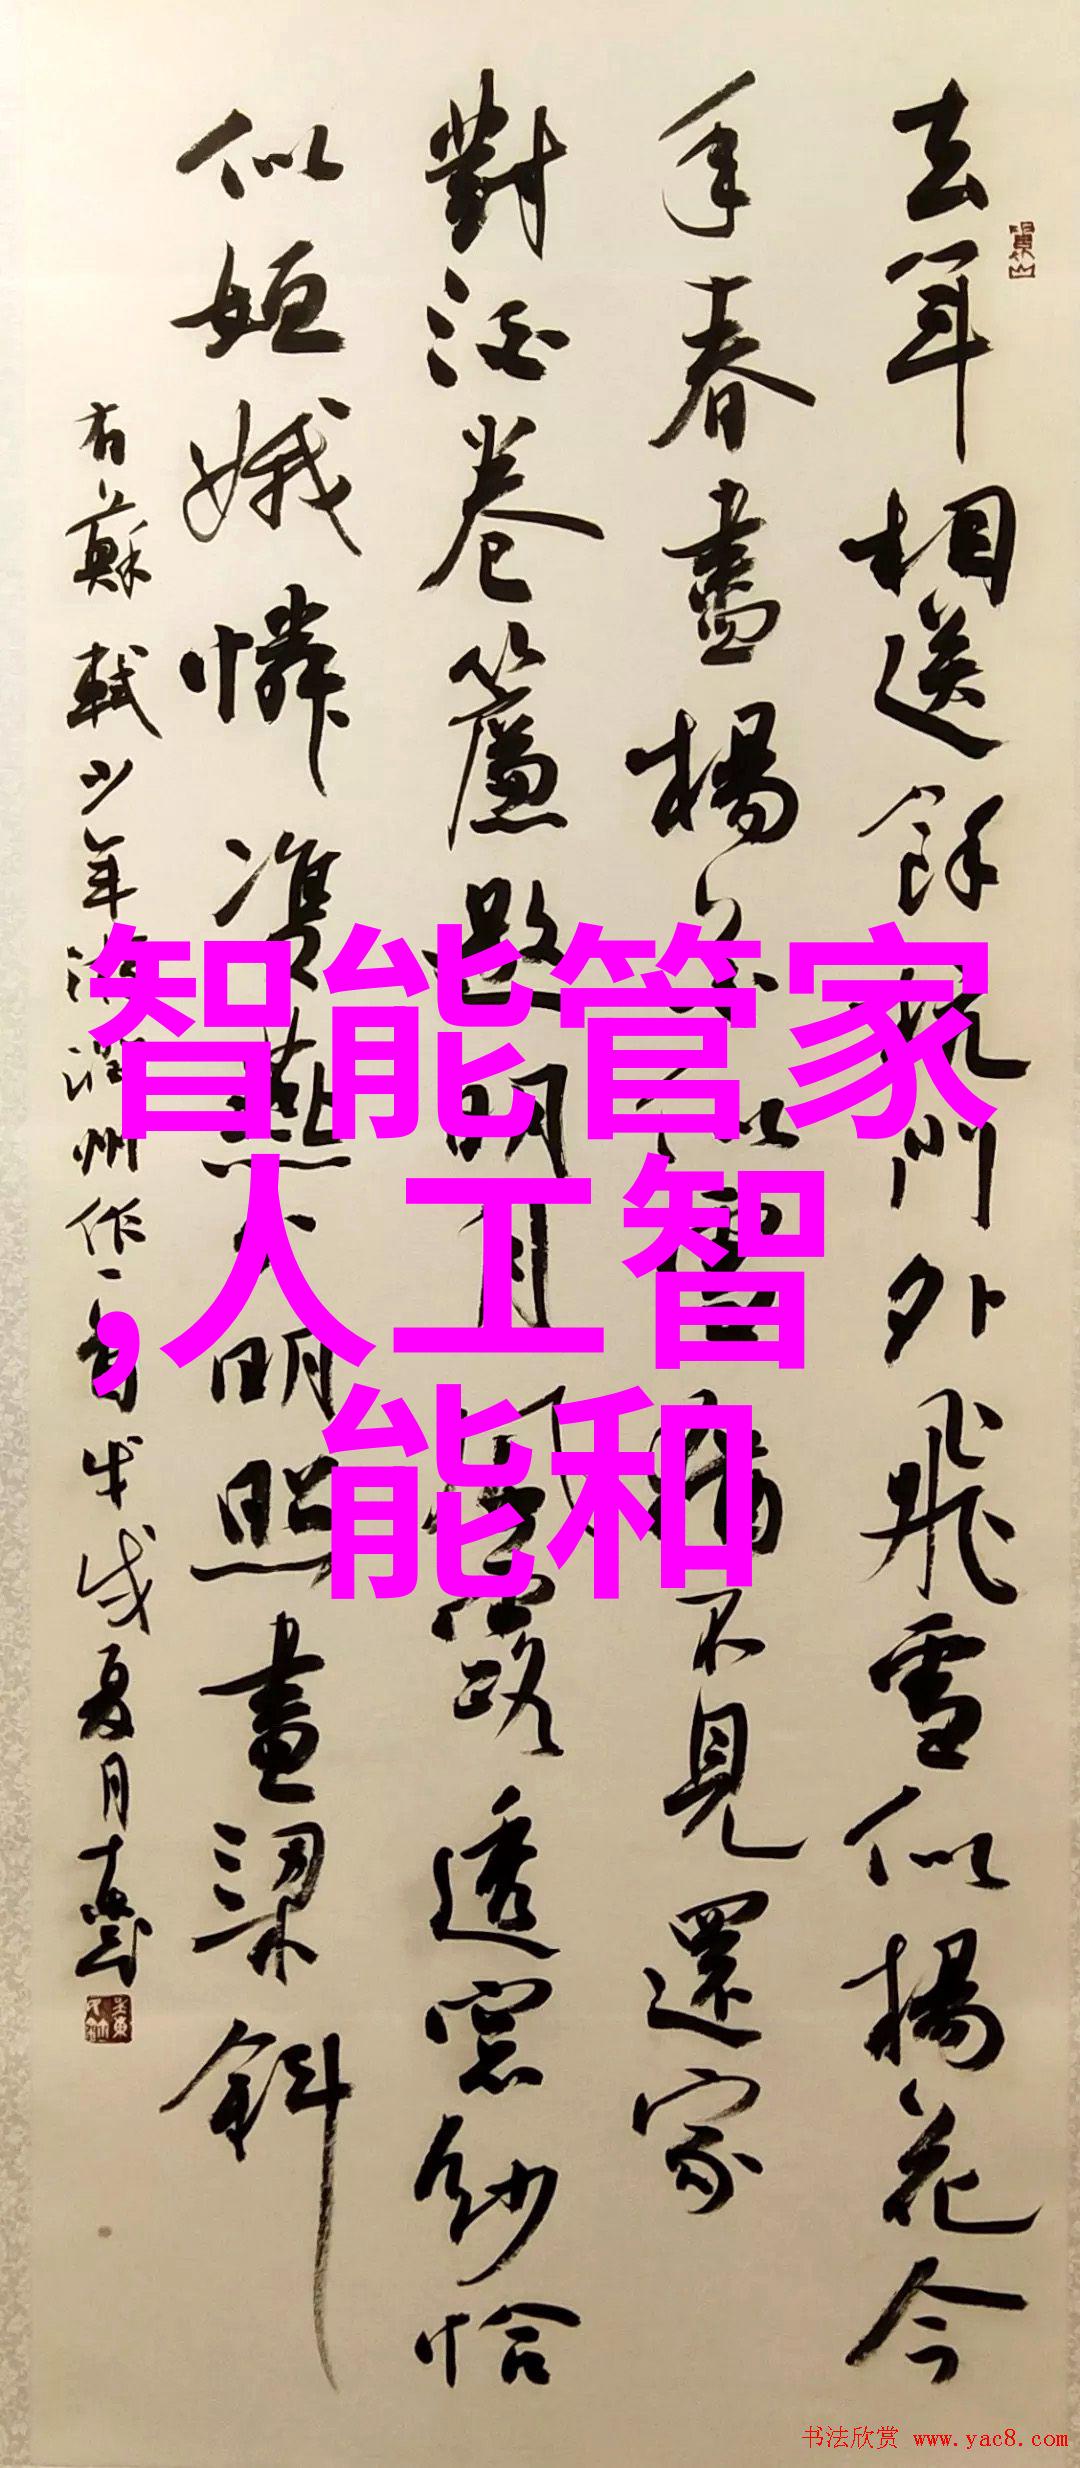 去年相送餘杭門外飛雪似楊花今
年春盡楊花似雪猶不見還家
對酒卷簾邀明月風露透窗紗恰
似姮娥憐雙燕分明照畫梁斜
右蘇軾少年游潤州作一首戊戌夏月
智能管家
,人工智
能和
书法欣赏 www.yac8.com